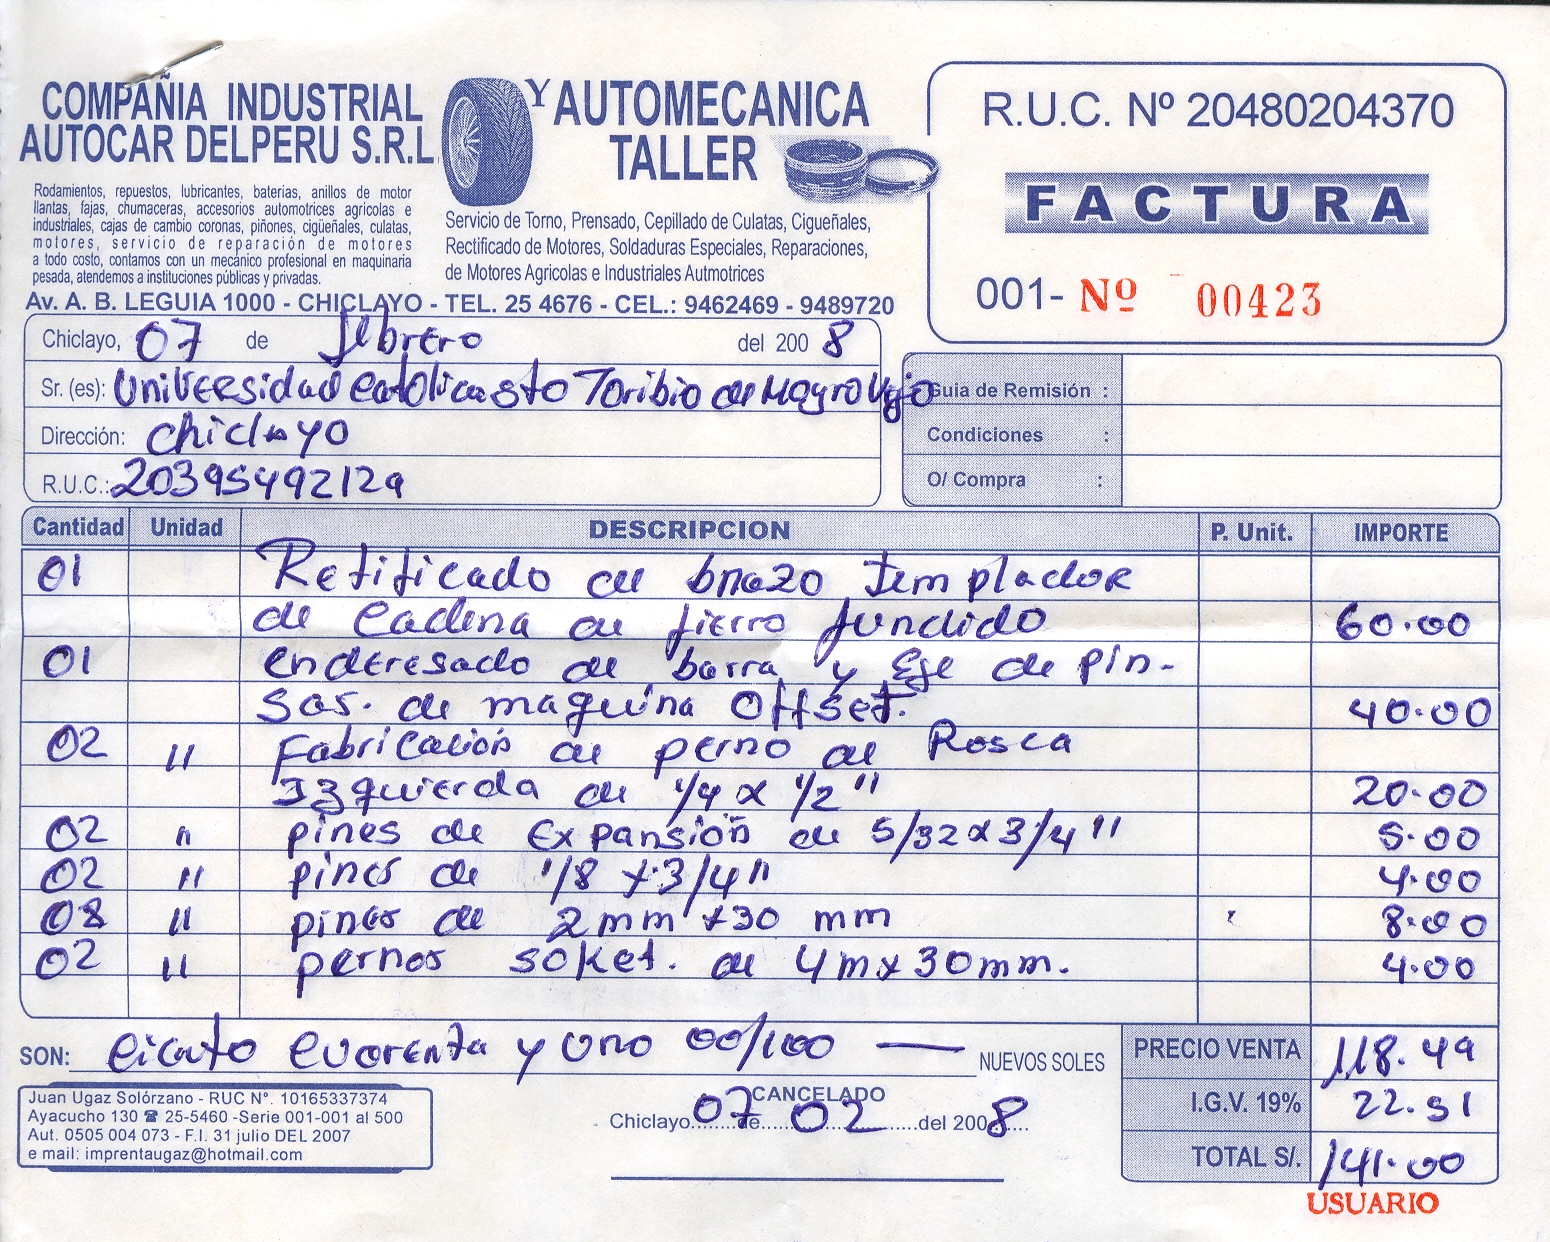 COMPAÑIA INDUSTRIAL
AUTOCAR DELPERU S.R.L.
Rodamientos, repuestos, lubricantes, baterias, anillos de motor
llantas, fajas, chumaceras, accesorios automotrices agricolas e
industriales, cajas de cambio coronas, piñones, cigüeñales, culatas,
motores, servicio de reparación de motores
a todo costo, contamos con un mecánico profesional en maquinaria
pesada, atendemos a instituciones públicas y privadas.
Y AUTOMECANICA
TALLER
Servicio de Torno, Prensado, Cepillado de Culatas, Cigueñales,
Rectificado de Motores, Soldaduras Especiales, Reparaciones,
de Motores Agricolas e Industriales Autmotrices
Av. A. B. LEGUIA 1000 - CHICLAYO - TEL. 25 4676 - CEL.: 9462469 - 9489720
R.U.C. Nº 20480204370
FACTURA
001- Nº 00423
Chiclayo, 07 de febrero del 2008
Sr. (es): Universidad Catolica Sto Toribio de Mogrovejo
Dirección: Chiclayo
R.U.C.: 20395492129
Guia de Remisión :
Condiciones :
O/ Compra :
Cantidad Unidad DESCRIPCION P. Unit. IMPORTE
01 Retificado de brazo templador
de Cadena de fierro fundido 60.00
01 enderesado de barra y Eje de pin-
sas. de maquina Offset. 40.00
02 " Fabricación de perno de Rosca
Izquierda de 1/4 x 1/2" 20.00
02 " pines de Expansión de 5/32 x 3/4" 5.00
02 " pines de "1/8 x 3/4" 4.00
08 " pines de 2mm x 30 mm 8.00
02 " pernos soket. de 4m x 30mm. 4.00
SON: Ciento Cuarenta y Uno 00/100 NUEVOS SOLES
PRECIO VENTA 118.49
I.G.V. 19% 22.51
TOTAL S/. 141.00
CANCELADO
Chiclayo 07 de 02 del 2008
Juan Ugaz Solórzano - RUC N°. 10165337374
Ayacucho 130 ☎ 25-5460 -Serie 001-001 al 500
Aut. 0505 004 073 - F.I. 31 julio DEL 2007
e mail: imprentaugaz@hotmail.com
USUARIO